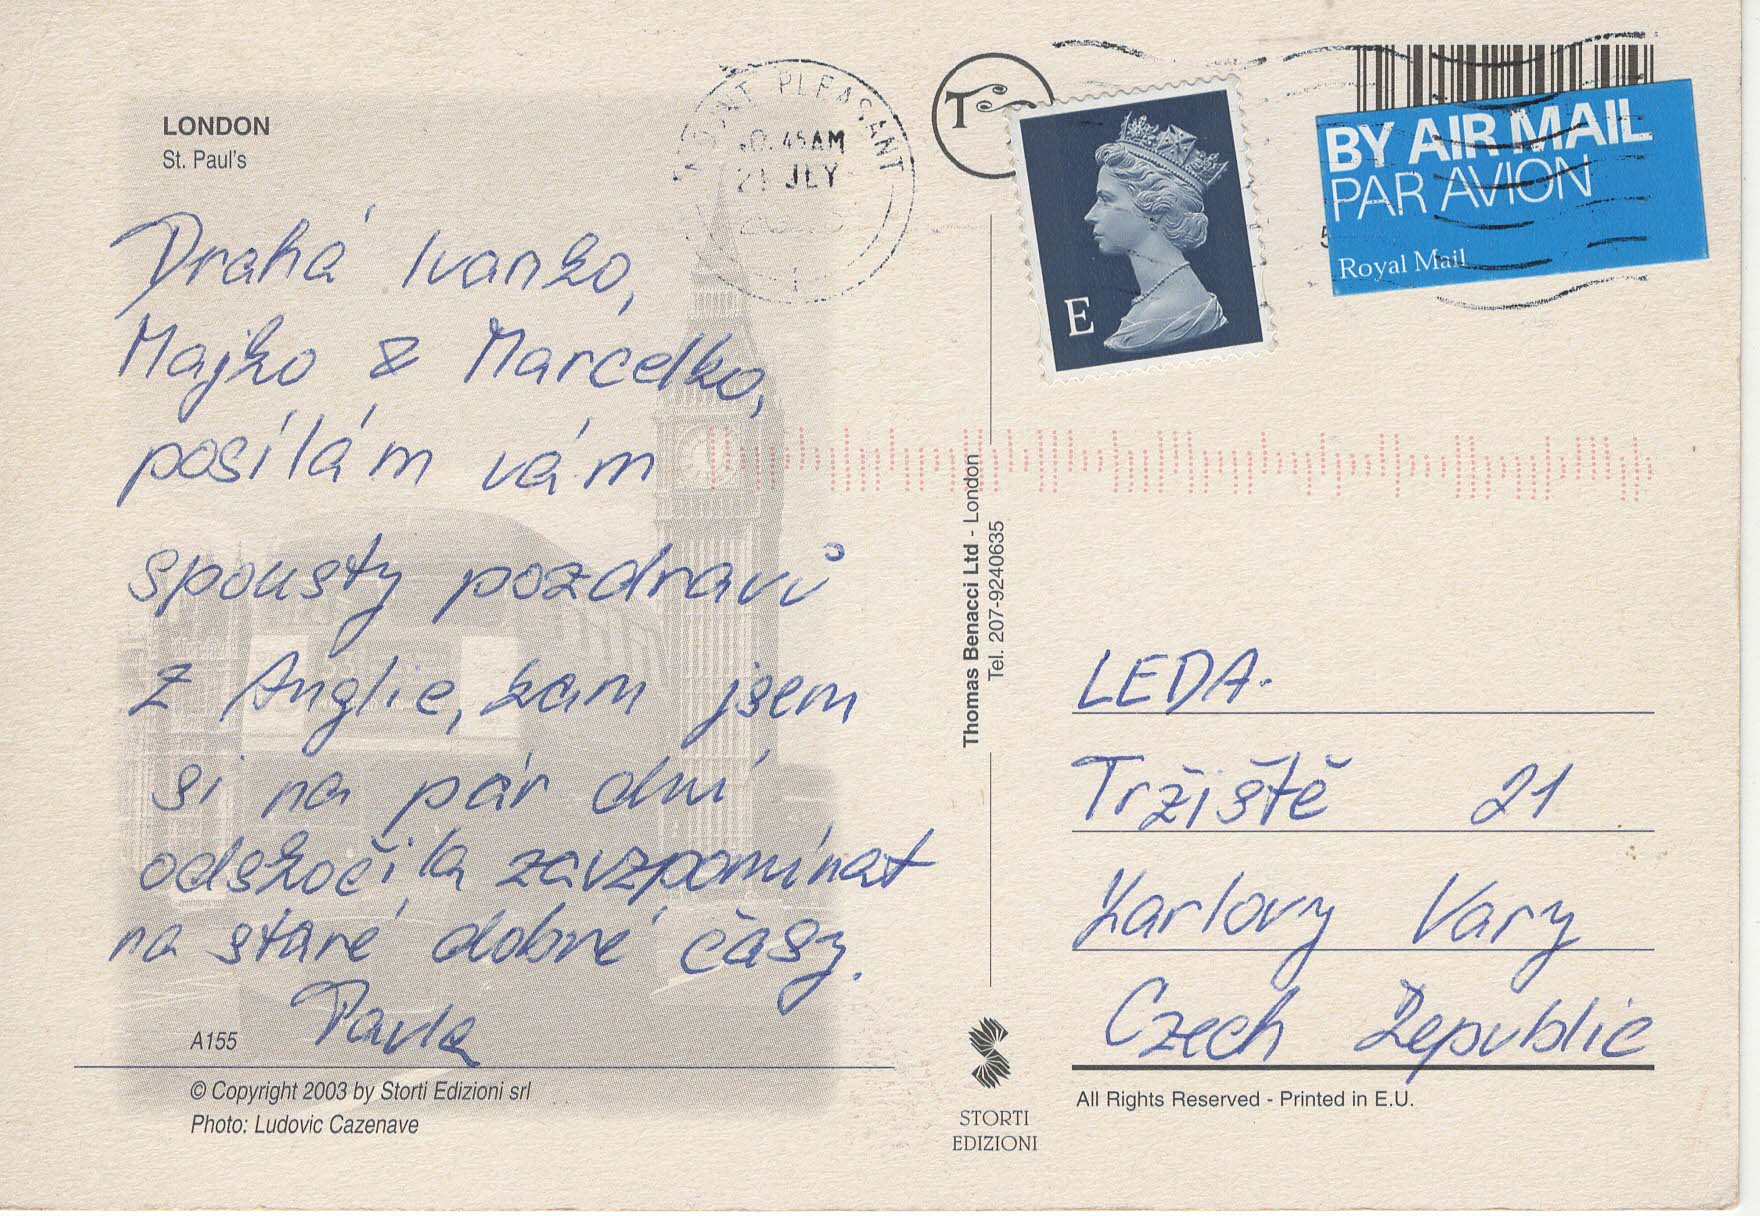 LONDON
St. Paul's
Drahá Ivanko,
Majko & Marcelko,
posílám vám
spousty pozdravů
z Anglie, kam jsem
si na pár dní
odskočila zavzpomínat
na staré dobré časy.
Pavla
A155
© Copyright 2003 by Storti Edizioni srl
Photo: Ludovic Cazenave
PLEASANT
45AM
21 JLY
T
E
BY AIR MAIL
PAR AVION
Royal Mail
Thomas Benacci Ltd - London
Tel. 207-9240635
LEDA.
Tržiště 21
Karlovy Vary
Czech Republic
STORTI
EDIZIONI
All Rights Reserved - Printed in E.U.